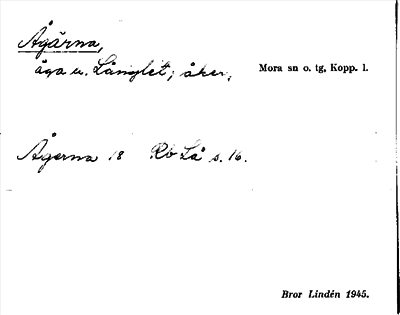 Ågärna,
äga u. Långlet; åker; Mora sn o. tg, Kopp. l.
Ågerna 18 Rb Lå s. 16.
Bror Lindén 1945.